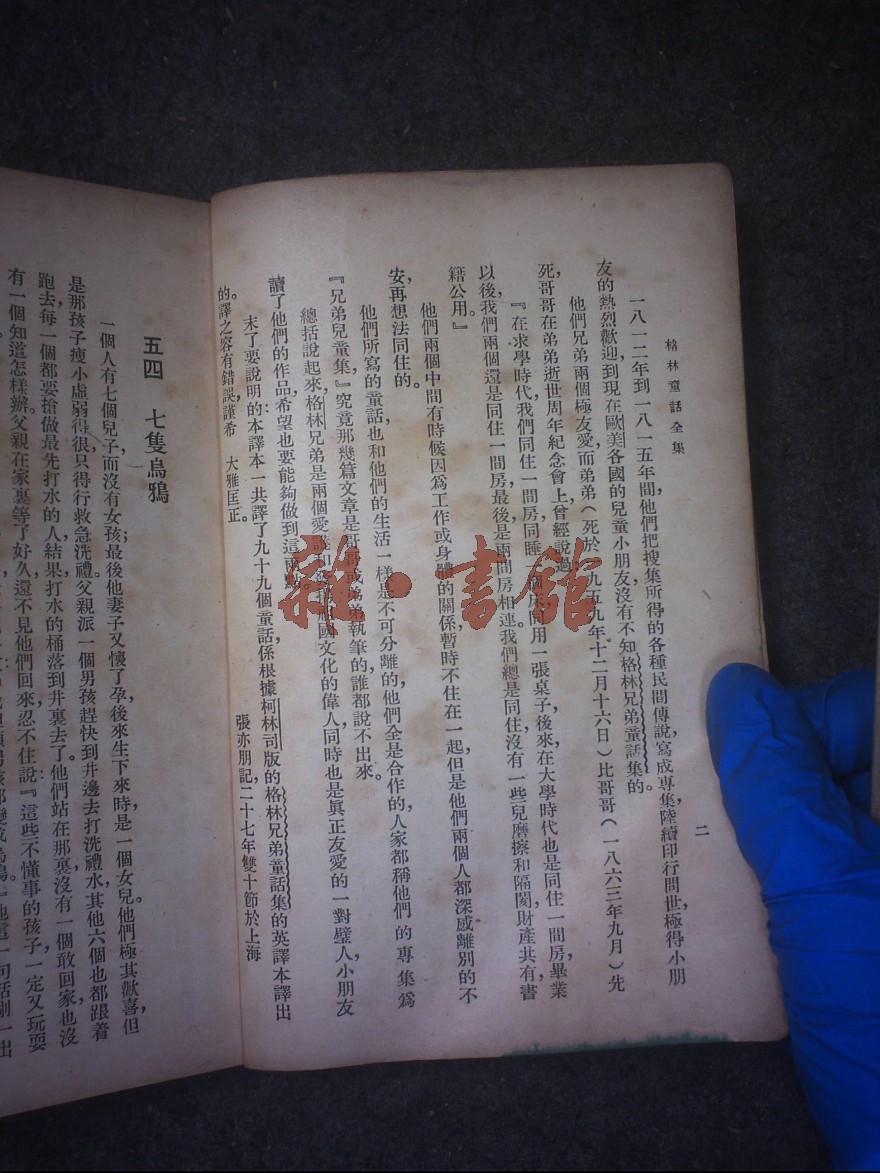 格林童話全集
二
一八一二年到一八一五年間他們把搜集所得的各種民間傳說，寫成專集，陸續印行問世，極得小朋
友的熱烈歡迎，到現在歐美各國的兒童小朋友，沒有不知格林兄弟童話集的。
他們兄弟兩個極友愛，而弟弟（死於一九五九年十二月十六日）比哥哥（一八六三年九月）先
死，哥哥在弟弟逝世周年紀念會上，曾經說過：
『在求學時代，我們同住一間房，同睡一個床，同用一張桌子，後來，在大學時代也是同住一間房，畢業
以後，我們兩個還是同住一間房，最後是兩間房相連，我們總是同住，沒有一些兒磨擦和隔閡，財產共有，書
籍公用。』
他們兩個中間有時候因為工作或身體的關係，暫時不住在一起，但是他們兩個人都深感離別的不
安，再想法同住的。
他們所寫的童話也和他們的生活一樣是不可分離的，他們全是合作的，人家都稱他們的專集爲
『兄弟兒童集』究竟那幾篇文章是哥哥或弟弟執筆的，誰都說不出來。
總括說起來，格林兄弟是兩個愛護和發揚祖國文化的偉人，同時也是眞正友愛的一對璧人，小朋友
讀了他們的作品，希望也要能夠做到這兩點。
末了要說明的：本譯本一共譯了九十九個童話，係根據柯林司版的格林兄弟童話集的英譯本譯出
的。譯之容有錯誤，謹希　大雅匡正。
張亦朋記，二十七年雙十節於上海
五四　七隻烏鴉
一個人有七個兒子，而沒有女孩；最後他妻子又懷了孕，後來生下來時，是一個女兒。他們極其歡喜，但
是那孩子瘦小虛弱得很，只得行救急洗禮。父親派一個男孩趕快到井邊去打洗禮水，其他六個也都跟着
跑去，每一個都要搶做最先打水的人，結果，打水的桶落到井裏去了。他們站在那裏，沒有一個敢回家，也沒
有一個知道怎樣辦。父親在家裏等了好久，還不見他們回來，忍不住說『這些不懂事的孩子，一定又玩耍
男孩都變成烏鴉。』他這一句話剛一出
雜·書館